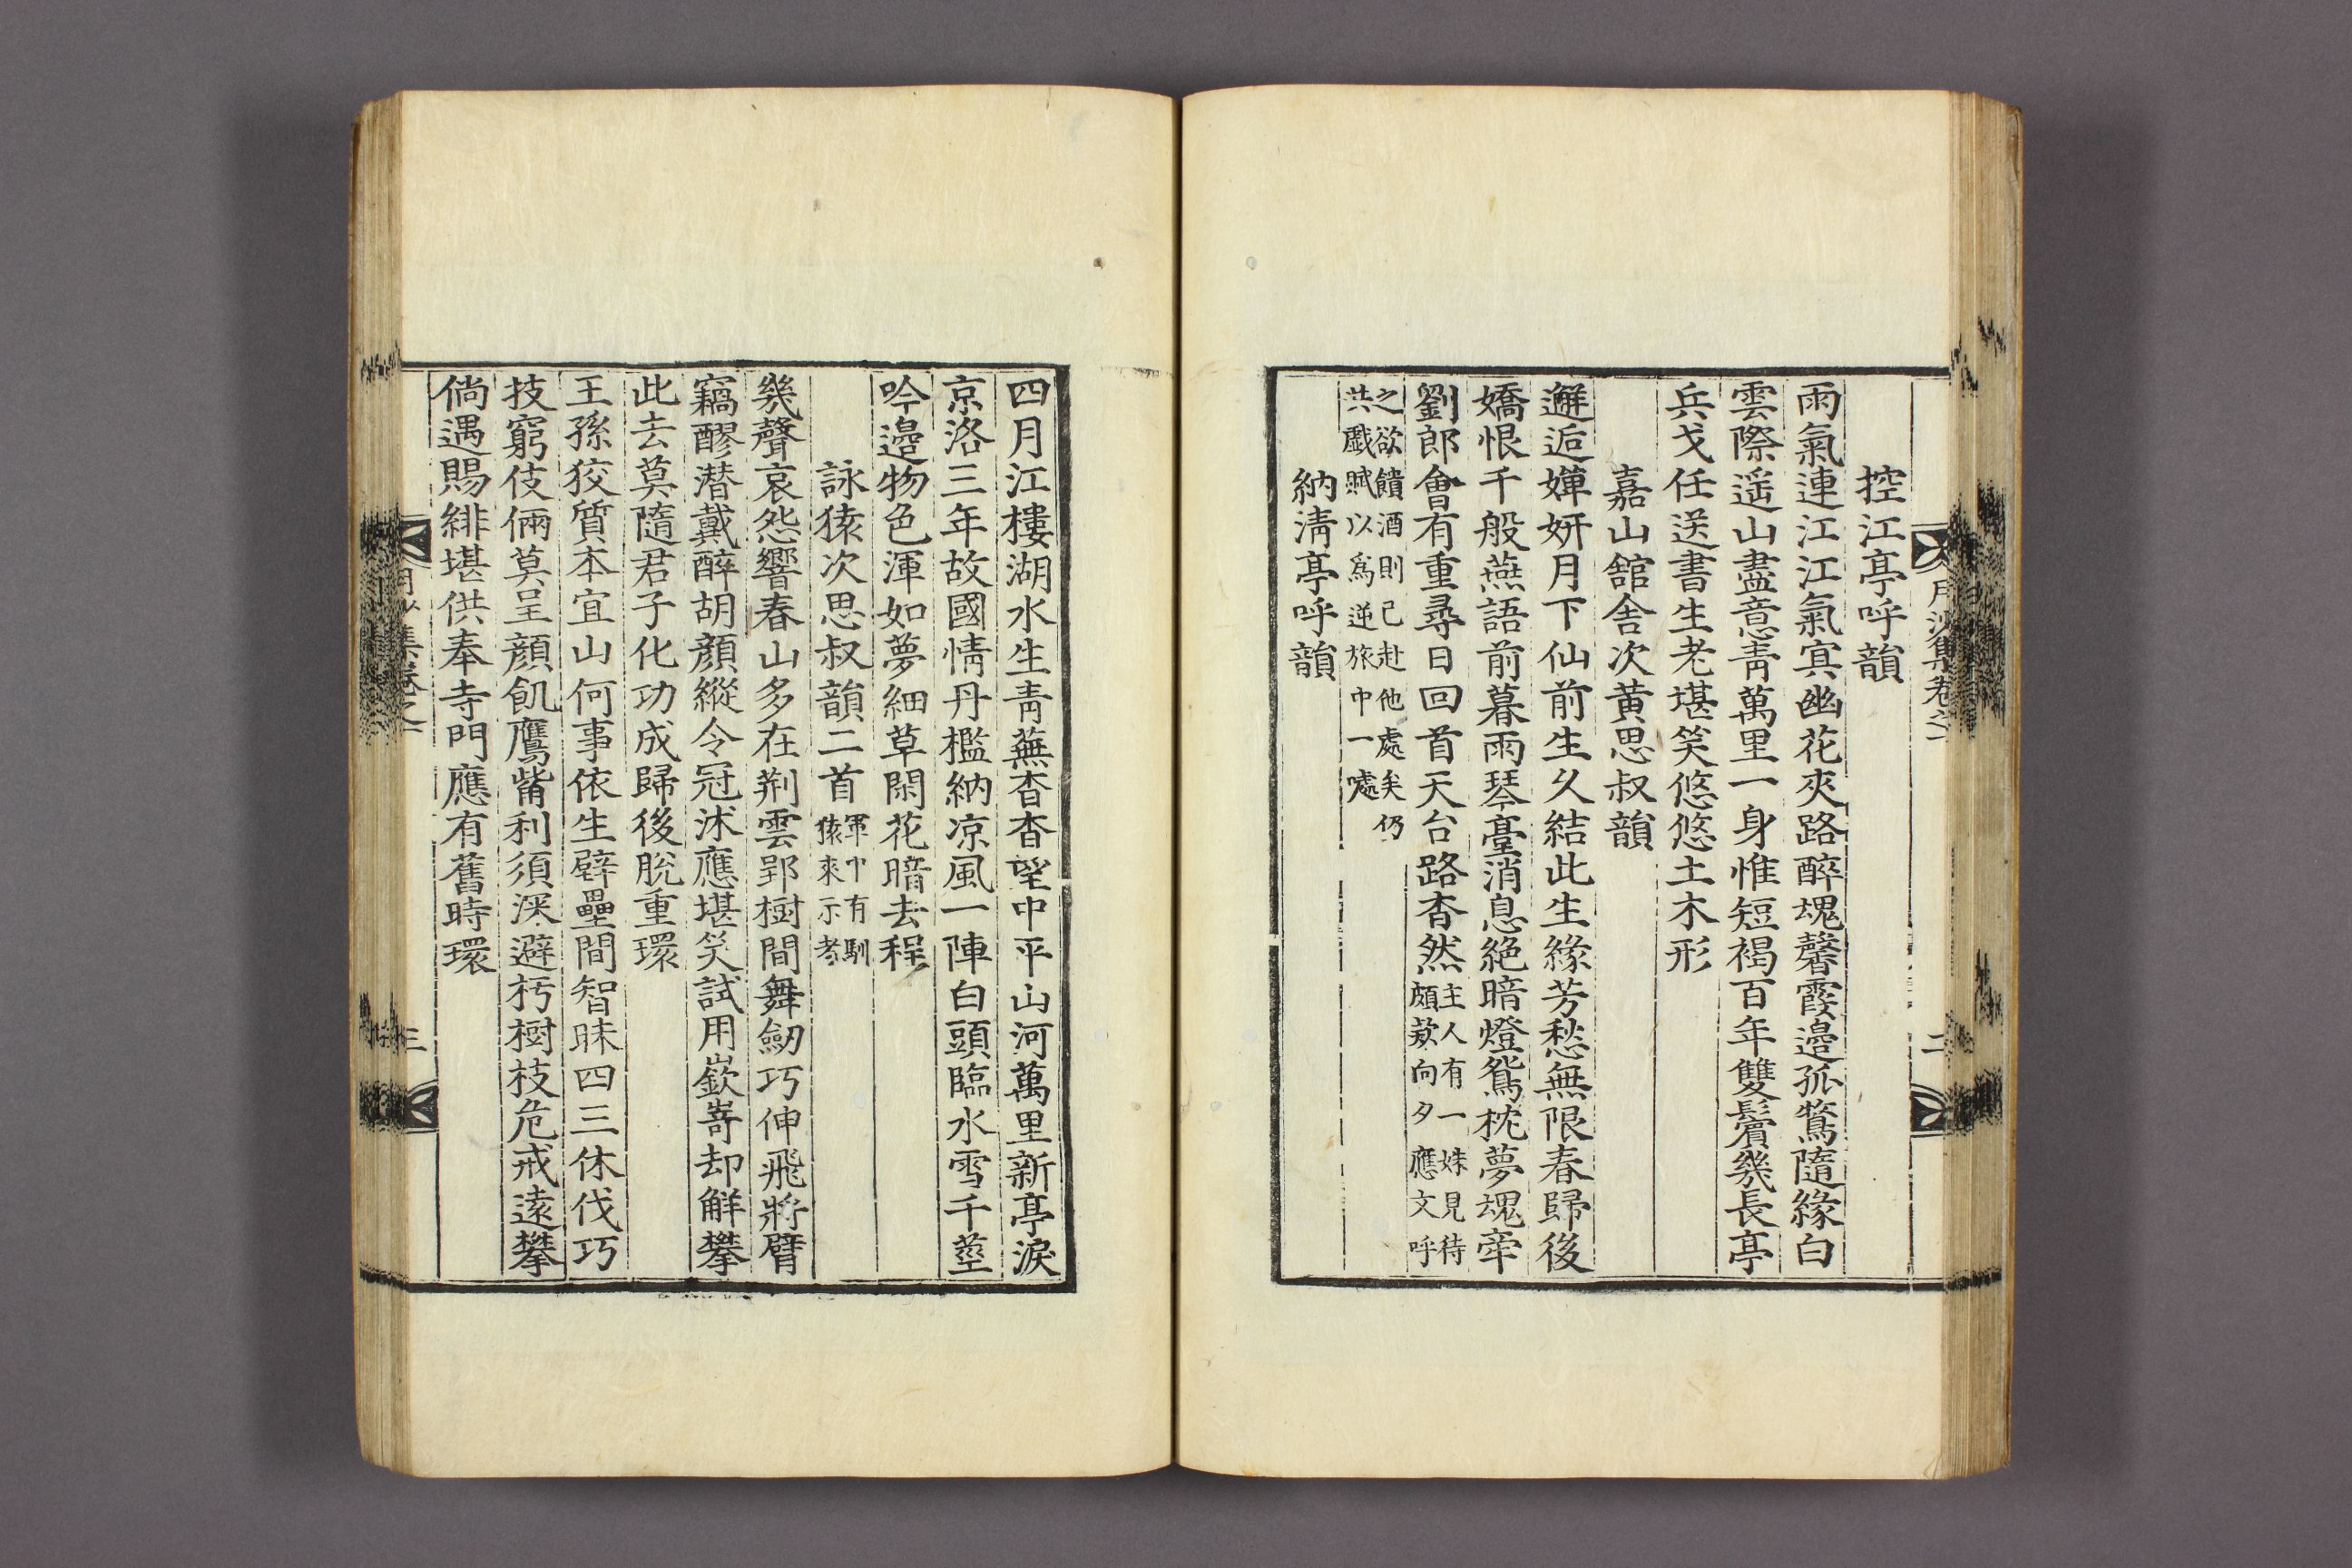 月沙集卷之一
二
控江亭呼韻
雨氣連江江氣寘幽花夾路醉魂馨霞邉孤鶩隨緣白
雲際遥山盡意靑萬里一身惟短褐百年雙鬢幾長亭
兵戈任送書生老堪笑悠悠土木形
嘉山舘舍次黄思叔韻
邂逅嬋妍月下仙前生久結此生緣芳愁無限春歸後
嬌恨千般燕語前暮雨琴臺消息絶暗燈鴛枕夢魂牽
劉郎會有重尋日回首天台路杳然
主人有一妹見待
頗欵向夕應文呼
之欲饋酒則已赴他處矣仍
共戱賦以爲逆旅中一噱
納淸亭呼韻
四月江樓湖水生靑蕪杳杳望中平山河萬里新亭淚
京洛三年故國情丹檻納凉風一陣白頭臨水雪千莖
吟邉物色渾如夢細草閑花暗去程
詠猿次思叔韻二首
軍中有馴
猿來示考
幾聲哀怨響春山多在荆雲郢樹間舞劒巧伸飛將臂
竊醪潜戴醉胡顔縱令冠沐應堪笑試用嶔嵜却解攀
此去莫隨君子化功成歸後脫重環
王孫狡質本宜山何事依生壁壘間智昧四三休伐巧
技窮伎倆莫呈顔飢鷹觜利須深避朽樹枝危戒遠攀
倘遇賜緋堪供奉寺門應有舊時環
集卷之一
三